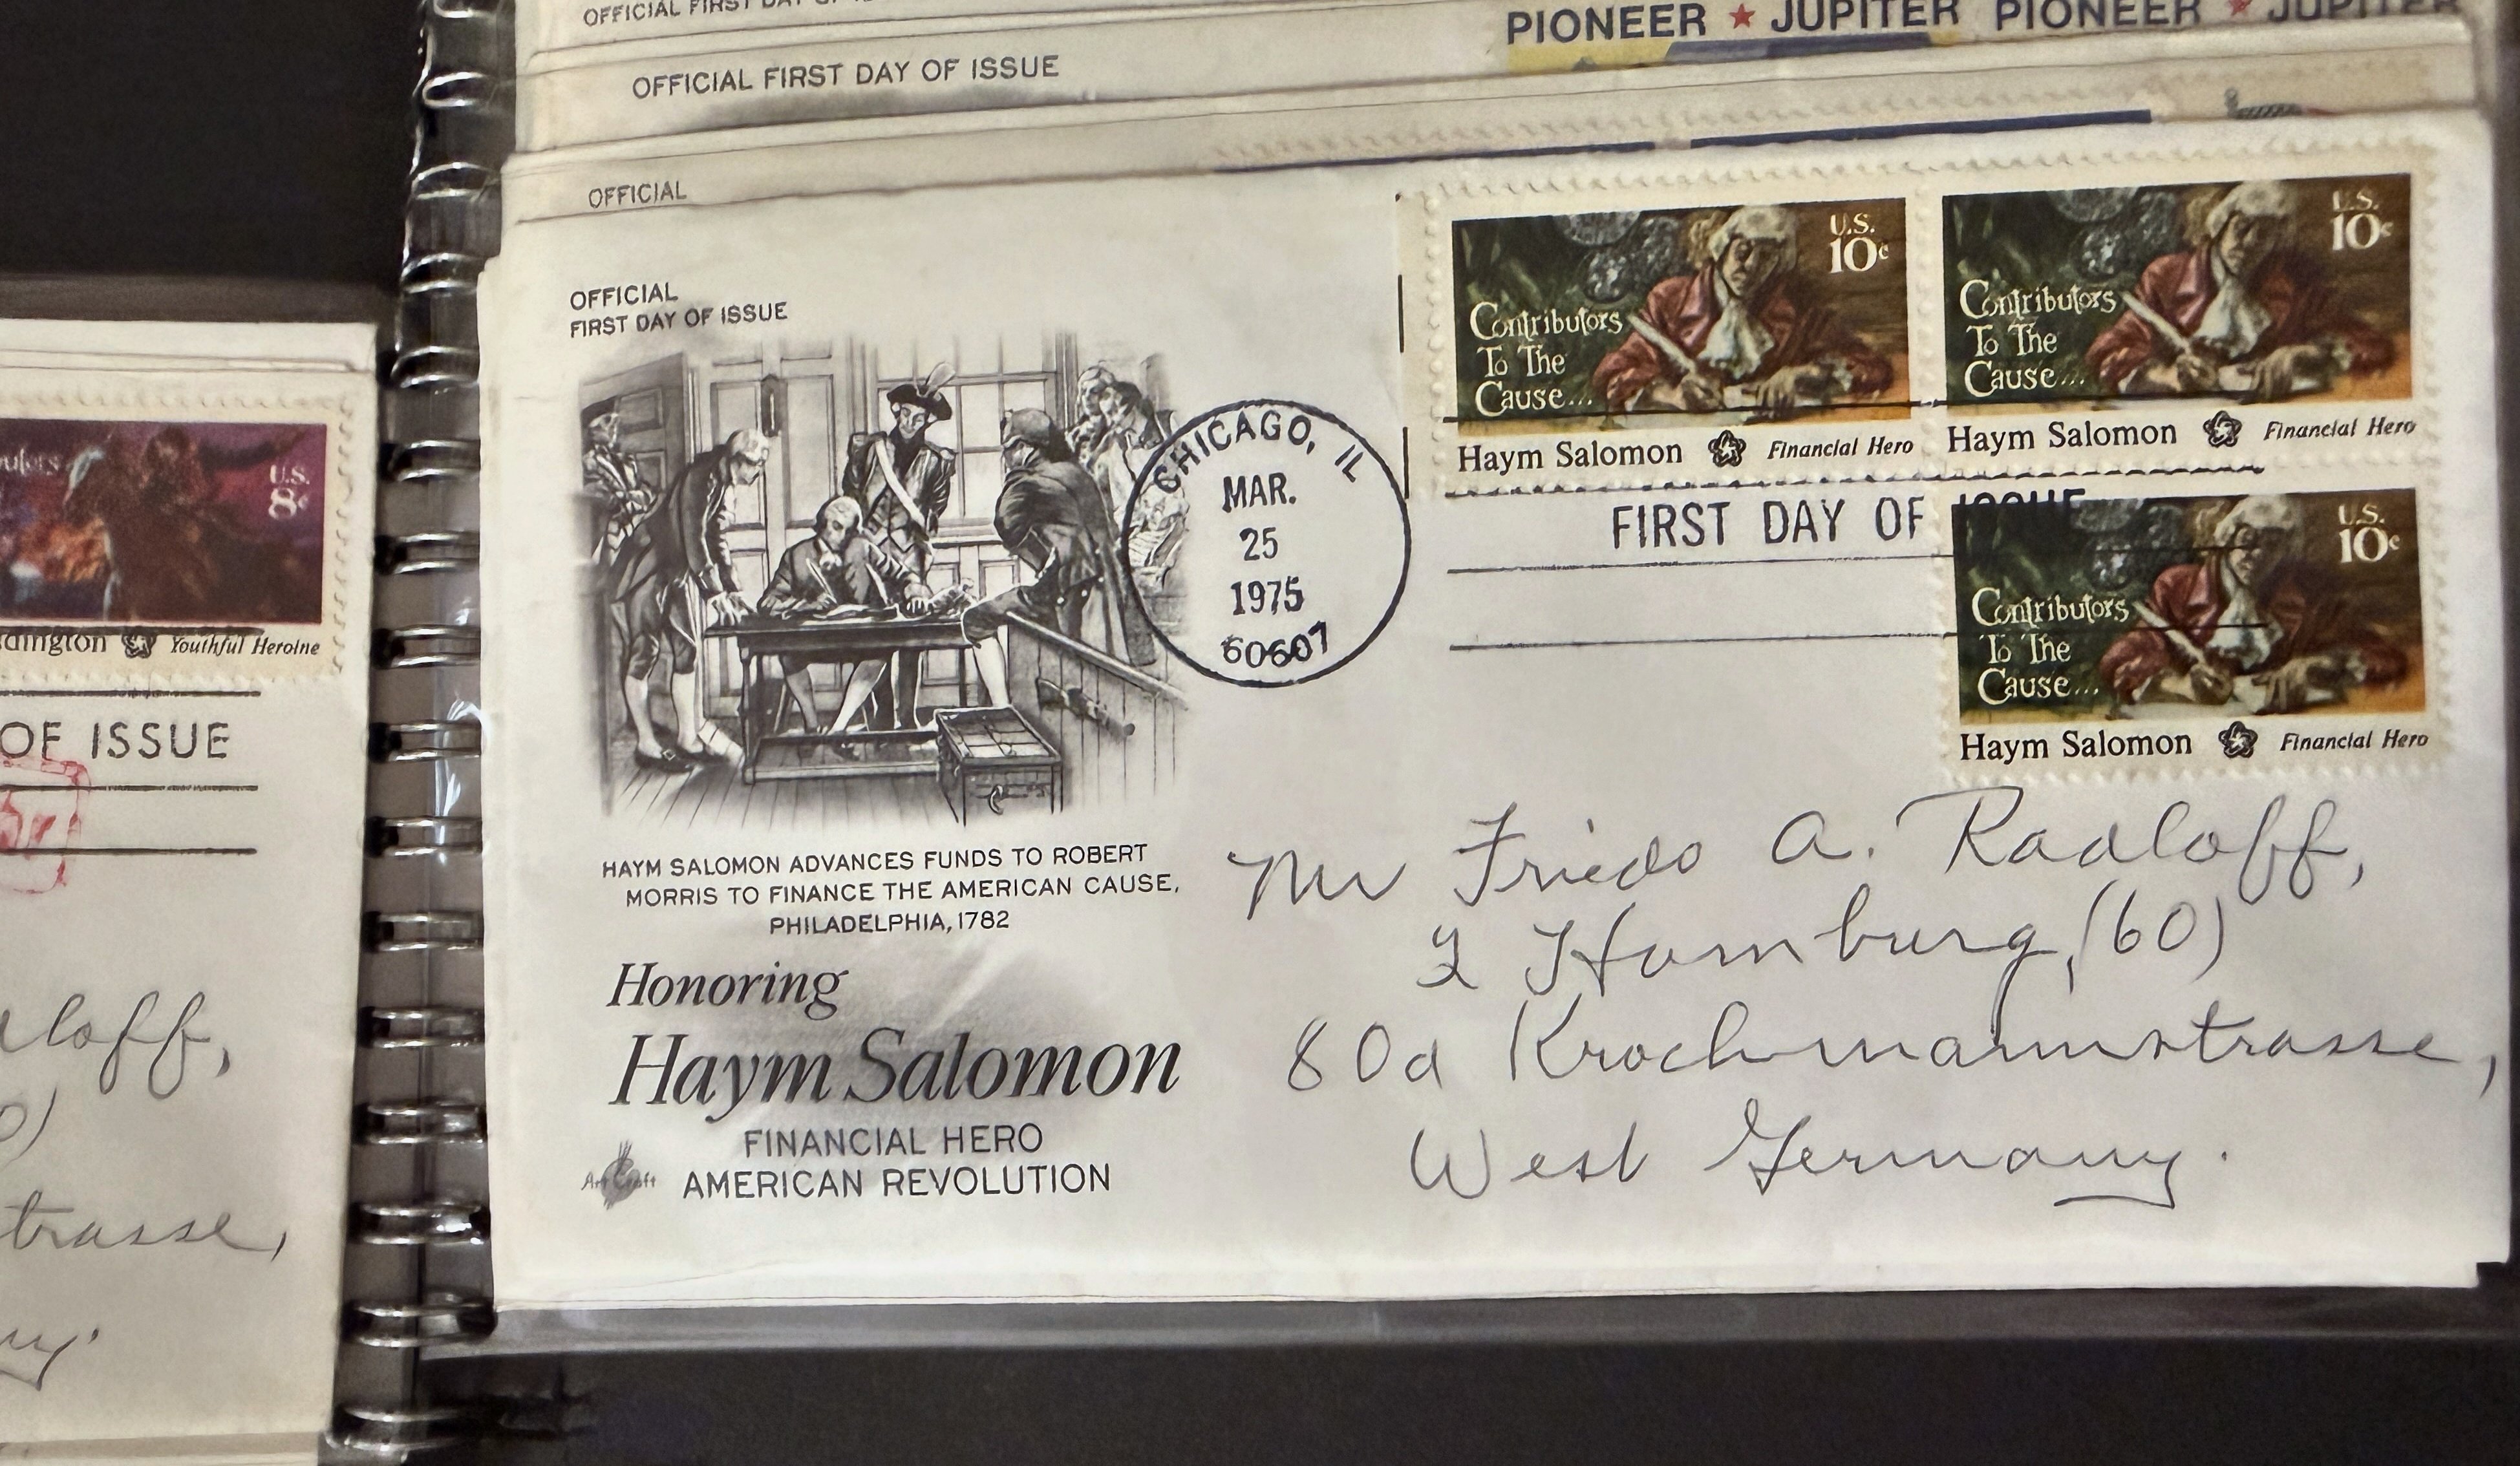 OFFICIAL FIRST DAY OF
PIONEER ★ JUPITER PIONEER ★ JUPITER
OFFICIAL FIRST DAY OF ISSUE
OFFICIAL
OFFICIAL
FIRST DAY OF ISSUE
CHICAGO, IL
MAR.
25
1975
60607
U.S.
10c
Contributors
To The
Cause...
Haym Salomon Financial Hero
U.S.
10c
Contributors
To The
Cause...
Haym Salomon Financial Hero
FIRST DAY OF ISSUE
U.S.
10c
Contributors
To The
Cause...
Haym Salomon Financial Hero
HAYM SALOMON ADVANCES FUNDS TO ROBERT
MORRIS TO FINANCE THE AMERICAN CAUSE,
PHILADELPHIA, 1782
Honoring
Haym Salomon
FINANCIAL HERO
AMERICAN REVOLUTION
ArtCraft
Mr Friedo A. Radloff,
2 Hamburg, (60)
80a Krochmannstrasse,
West Germany.
U.S.
8c
utors
dington Youthful Heroine
OF ISSUE
loff,
0)
trasse,
ny.